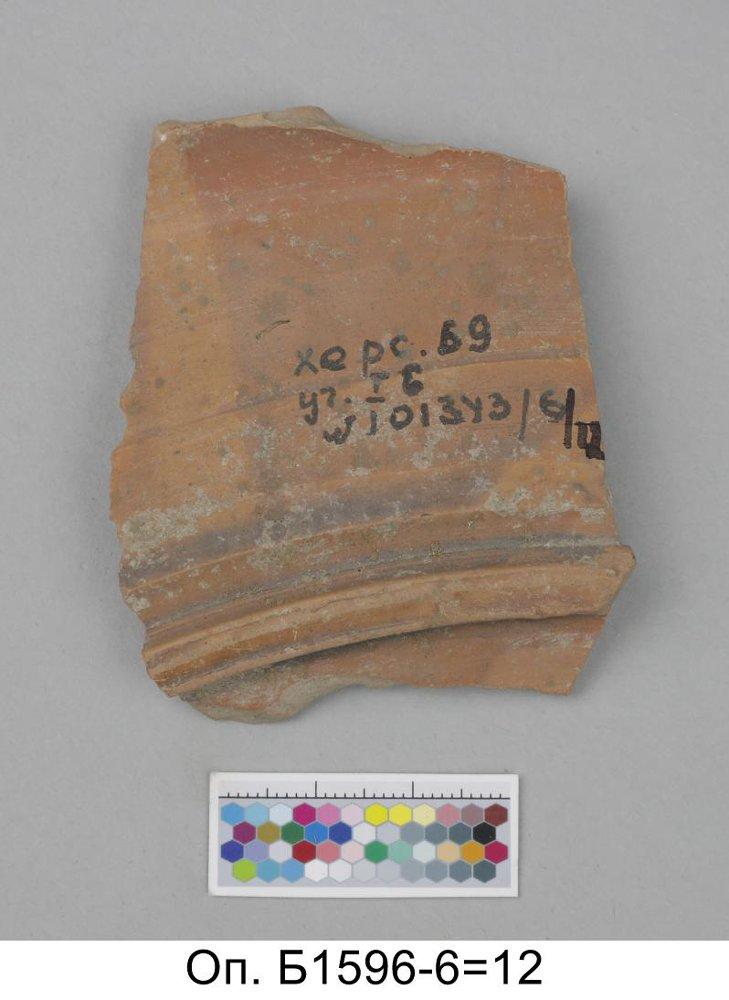 херс. 69
уг. I б
101343/6/12
Оп. Б1596-6=12